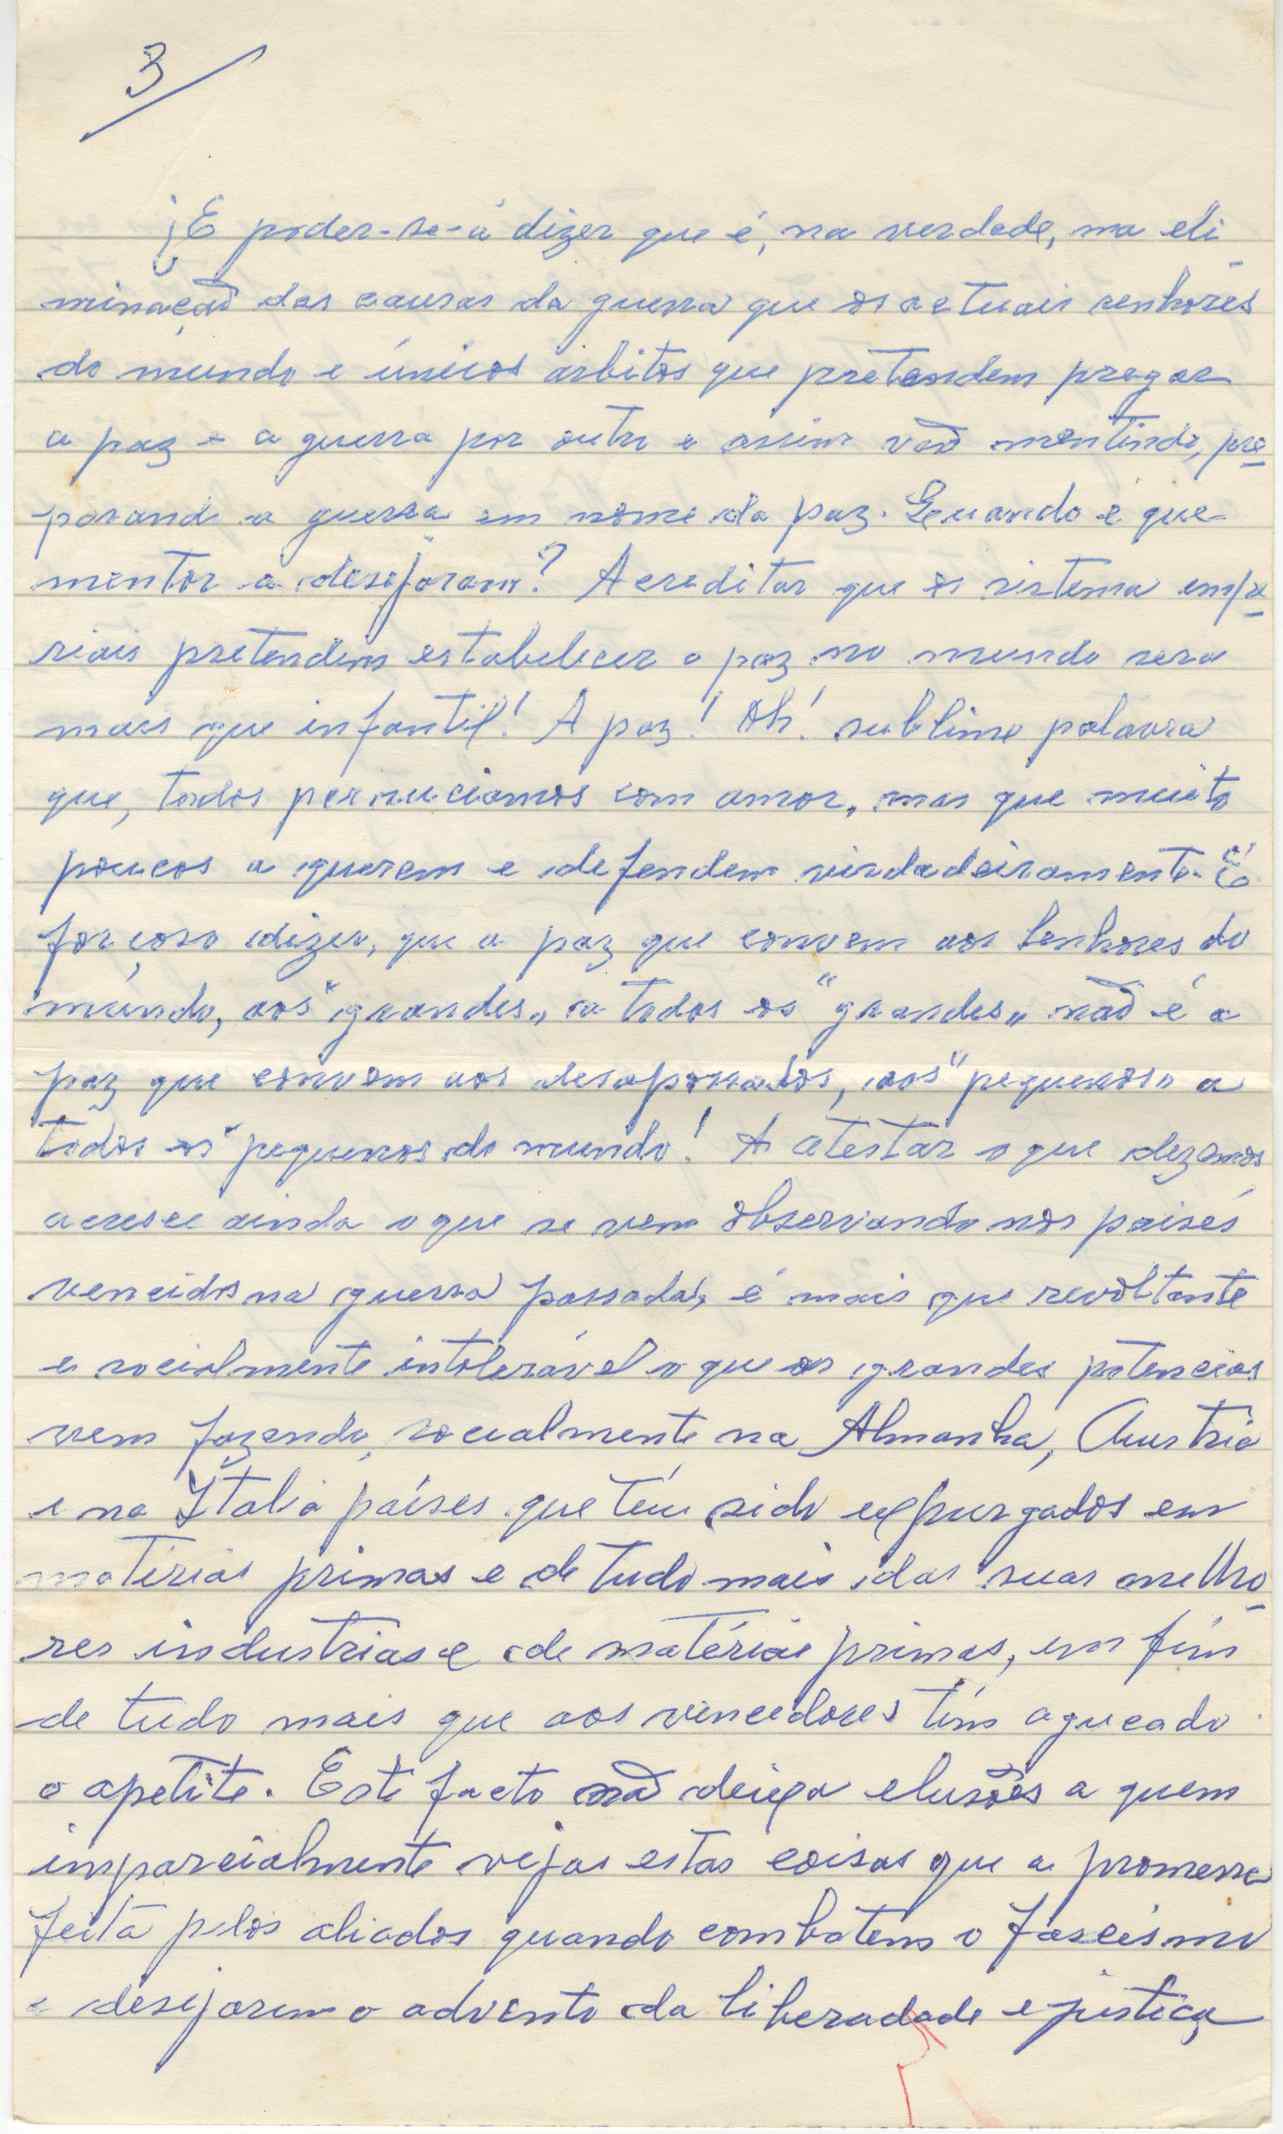 3
¿E poder-se-á dizer que é, na verdade, na eli
minação das causas da guerra que os actuais senhores
do mundo e únicos árbitos que pretendem pregar
a paz e a guerra por outro e assim vão mentindo, pre
parando a guerra em nome da paz. Quando é que
mentor a desejaram? Acreditar que os sistema empe
riais pretendem estabelecer a paz no mundo sera
mais que infantil! A paz! Ah! sublime palavra
que, todos pernuciamos com amor, mas que muito
poucos a querem e defendem verdadeiramente. É
forçoso dizer, que a paz que convem aos Senhores do
mundo, aos "grandes" a todos os "grandes" não é a
paz que convem aos desapossados, aos "pequenos" a
todos os "pequenos do mundo! A atestar o que dezemos
acresce ainda o que se vem observando nos países
vencidos na guerra passada, é mais que revoltante
e socialmente intolerável o que as grandes potencias
vem fazendo, socialmente na Almanha, Austria
e na Itália países que têm sido expurgados em
matérias primas e de tudo mais das suas melho
res industrias e de matérias primas, em fim
de tudo mais que aos vencedores têm agucado
o apetite. Este facto não deixa elusões a quem
imparcialmente vejas estas coisas que a promessa
feita pelos aliados quando combatem o fascismo
e desejarem o advento da liberadade e justiça